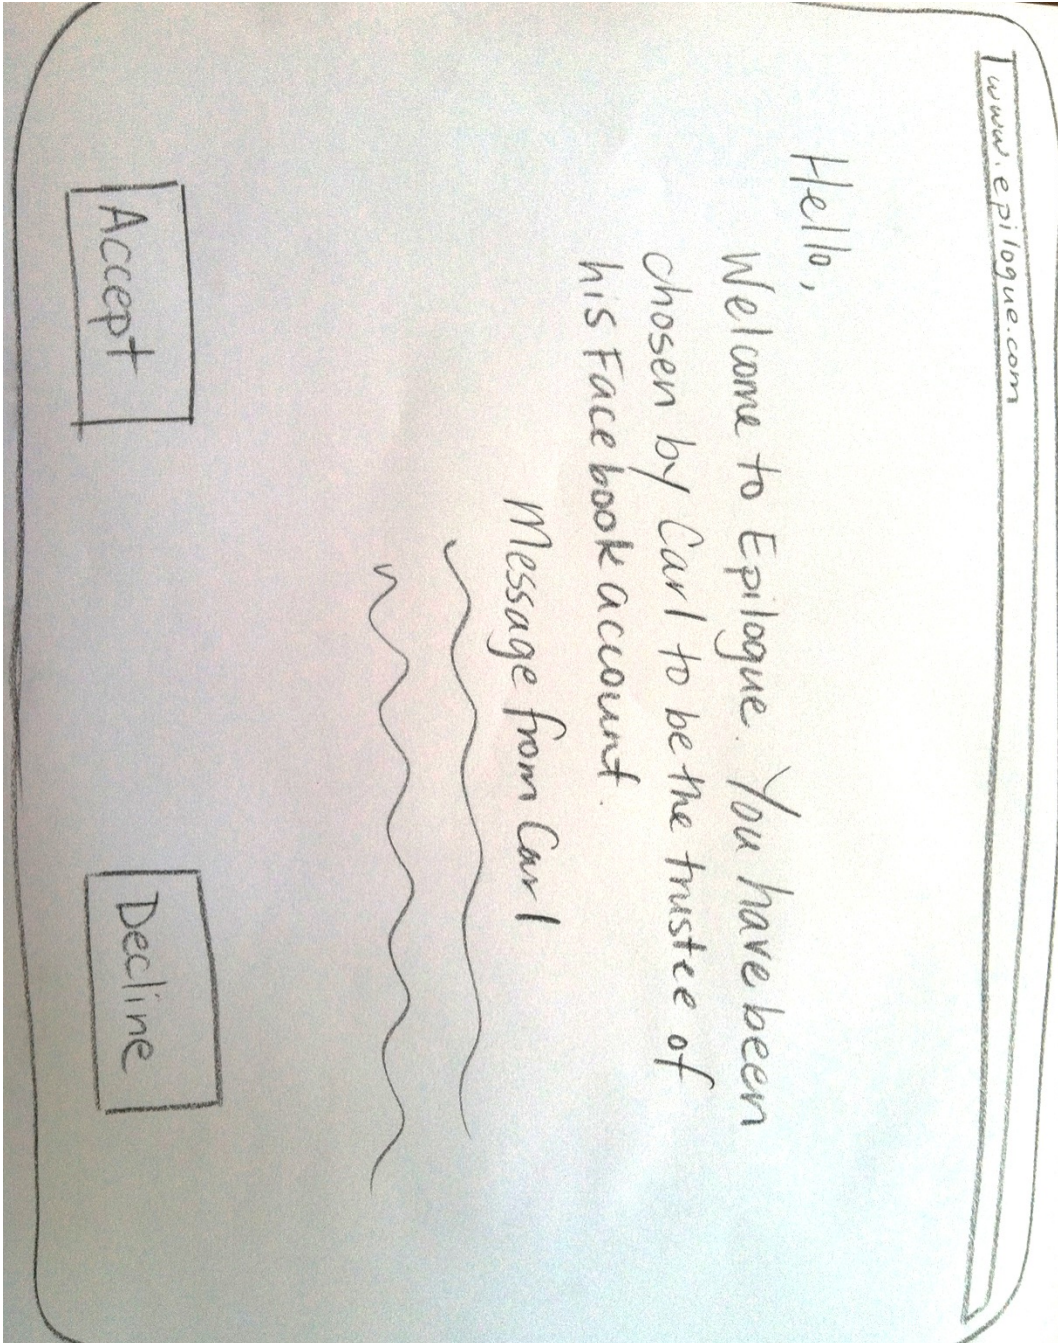 www.epilogue.com
Hello,
Welcome to Epilogue. You have been
chosen by Carl to be the trustee of
his Facebook account.
Message from Carl
Accept
Decline